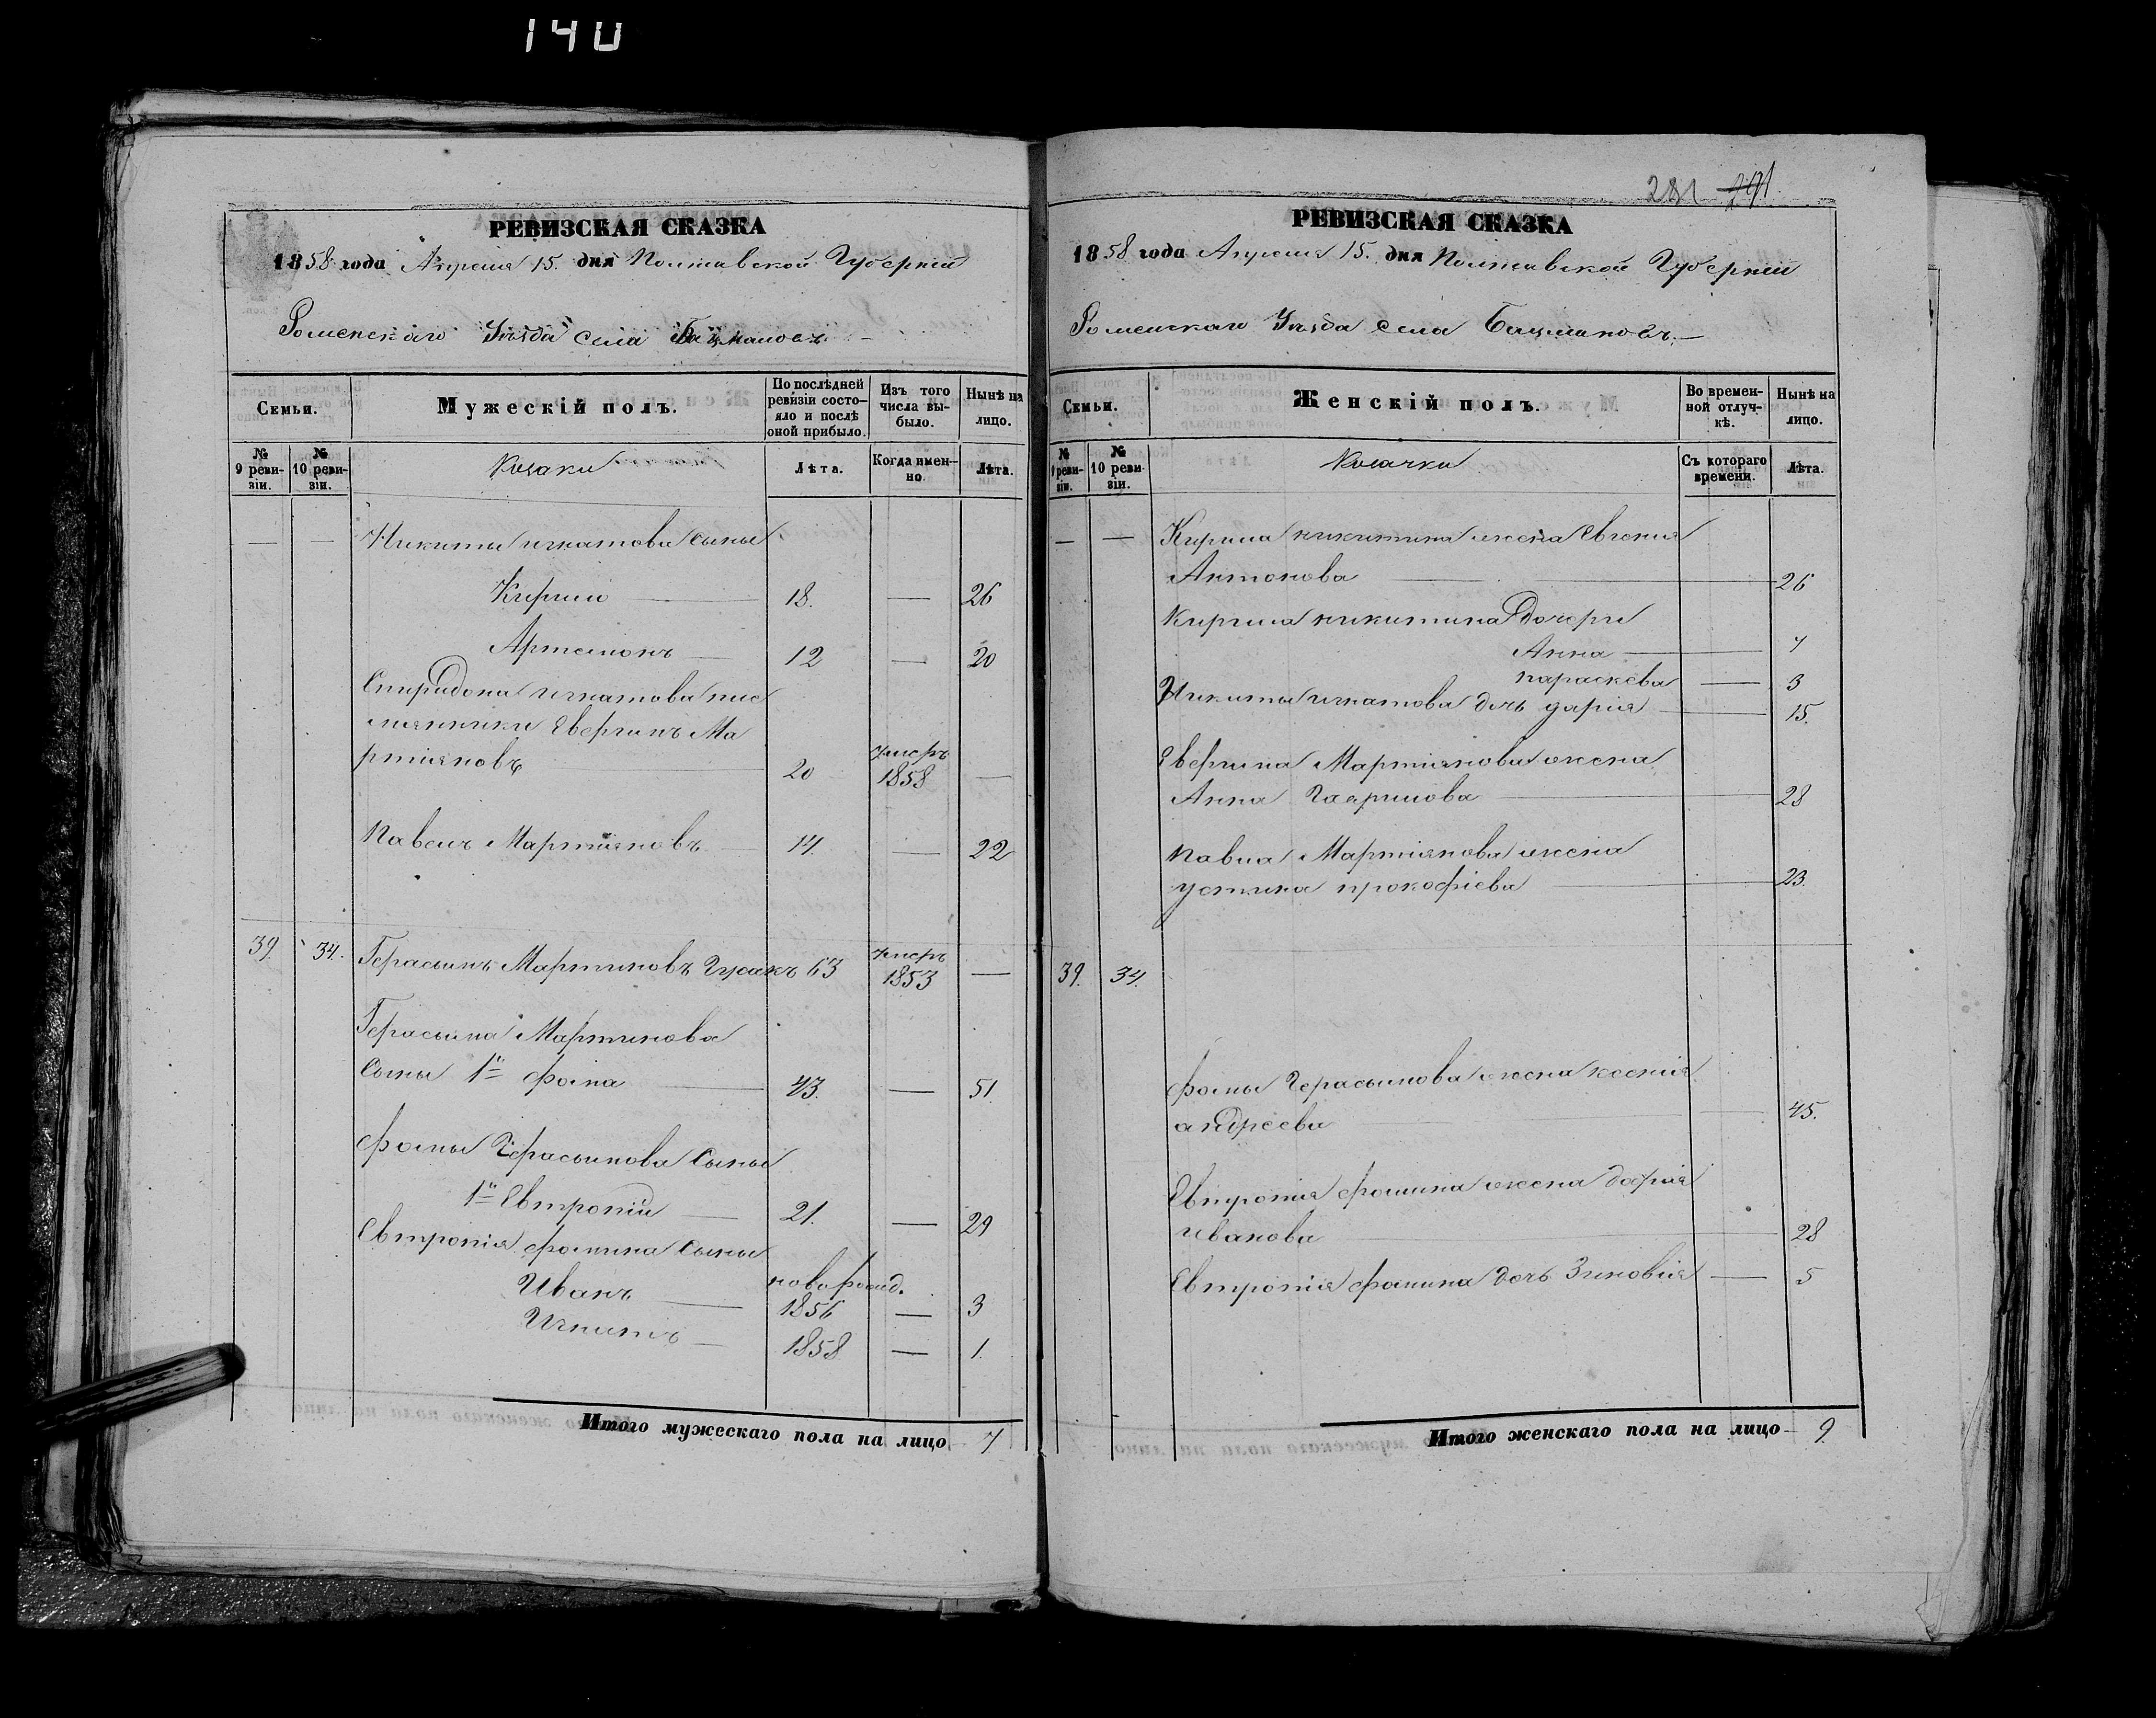 140
РЕВИЗСКАЯ СКАЗКА
1858 года Апреля 15. дня Полтавской Губерніи
Роменскаго Уѣзда села Бацмановъ
Семьи.
Мужескій полъ.
По послѣдней ревизіи состояло и послѣ оной прибыло.
Изъ того числа выбыло.
Нынѣ на лицо.
№ 9 ревизіи.
№ 10 ревизіи.
Козаки
Лѣта.
Когда именно.
Лѣта.
— — Никиты игнатова сыны
Кирило 18. — 26
Артемонъ 12 — 20
Спиридона игнатова пле
мянники Евергинъ Ма
ртіяновъ 20 умеръ 1858 —
Павелъ Мартіяновъ 14. — 22
39. 34. Герасимъ Мартиновъ Гужакъ 63 умеръ 1853 —
Герасыма Мартинова
Сыны 1й фома 43. — 51.
фомы Герасымова Сыны
1й Евтропій 21. — 29
Евтропія фомина Сыны
новорожд.
Иванъ 1856 — 3
Игнатъ 1858 — 1.
Итого мужескаго пола на лицо 7
281 291
РЕВИЗСКАЯ СКАЗКА
1858 года Апреля 15. дня Полтавской Губерніи
Роменскаго Уѣзда села Бацмановъ.
Семьи.
Женскій полъ.
Во временной отлучкѣ.
Нынѣ на лицо.
№ 9 ревизіи.
№ 10 ревизіи.
Козачки
Съ котораго времени.
Лѣта.
— — Кирила никитина жена Евгенія
Антонова 26
Кирила никитина дочери
Анна 7
параскева 3
Никиты игнатова дочь дарія 15.
Евергина Мартіянова жена
Анна Гаврилова 28
Павла Мартіянова жена
устина прокофіева 23.
39. 34.
фомы Герасымова жена ксенія
андреева 45.
Евтропія фомина жена дарія
иванова 28
Евтропія фомина дочь Зиновія 5
Итого женскаго пола на лицо 9.